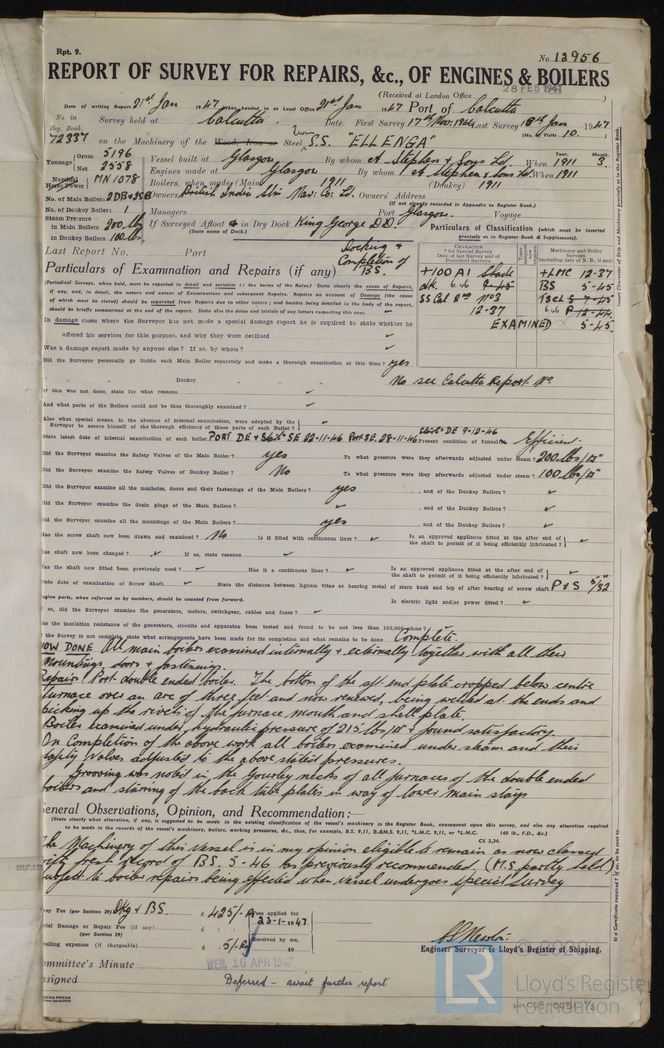 Rpt. 9.
No. 13956
REPORT OF SURVEY FOR REPAIRS, &c., OF ENGINES & BOILERS
28 FEB 1947
(Received at London Office )
Date of writing Report 21st Jan 1947 When handed in at Local Office 21st Jan 1947 Port of Calcutta
No. in Reg. Book. Survey held at Calcutta Date. First Survey 17th Nov. 1946 Last Survey 18th Jan 1947
(No. of Visits 10. )
72337 on the Machinery of the Wood, Iron or Steel S.S. "ELLENGA"
Tonnage Gross 5196 Net 2558
Vessel built at Glasgow By whom A. Stephen & Sons Ld. When 1911 3
Engines made at Glasgow By whom A. Stephen & Sons Ld. When 1911
Nominal Horse Power MN 1078 Boilers, when made (Main) 1911 (Donkey) 1911
No. of Main Boilers 2DB+2SB Owners British India Stm. Nav. Co. Ld. Owners' Address
(If not already recorded in Appendix to Register Book)
No. of Donkey Boilers 1 Managers Port Glasgow. Voyage
Steam Pressure in Main Boilers 200 lbs If Surveyed Afloat & in Dry Dock King George DD.
(State name of Dock.)
in Donkey Boilers 100 lbs
Particulars of Classification (which must be inserted precisely as in Register Book & Supplements).
Last Report No. Port Docking + Completion of BS.
Particulars of Examination and Repairs (if any)
CHARACTER for Special Survey Date of last Survey and of Periodical Surveys
Machinery and Boiler Surveys (including date of N. B., if any)
+100A1 Shade +LMC 12-37
BS 5-45
SS Cal. 2nd No3 TSCL 5-45
12-37
EXAMINED 5-45
In damage cases where the Surveyor has not made a special damage report he is required to state whether he
offered his services for this purpose, and why they were declined
Was a damage report made by anyone else? If so, by whom?
Did the Surveyor personally go inside each Main Boiler separately and make a thorough examination at this time? yes
" " Donkey " " No see Calcutta Report No
If this was not done, state for what reasons
And what parts of the Boilers could not be thoroughly examined?
Also what special means, in the absence of internal examination, were adopted by the
Surveyor to assure himself of the thorough efficiency of those parts of each Boiler?
State latest date of internal examination of each boiler PORT DE + Stbd SE 22-11-46 Port SE. 28-11-46 Stbd DE 9-12-46 Present condition of funnel Efficient.
Did the Surveyor examine the Safety Valves of the Main Boiler? yes To what pressure were they afterwards adjusted under steam? 200 lbs/□"
Did the Surveyor examine the Safety Valves of Donkey Boiler? No To what pressure were they afterwards adjusted under steam? 100 lbs/□"
Did the Surveyor examine all the manholes, doors and their fastenings of the Main Boilers? yes , and of the Donkey Boilers?
Did the Surveyor examine the drain plugs of the Main Boilers? , and of the Donkey Boilers?
Did the Surveyor examine all the mountings of the Main Boilers? yes , and of the Donkey Boilers?
Has the screw shaft now been drawn and examined? No Is it fitted with continuous liner? Is an approved appliance fitted at the after end of the shaft to permit of it being efficiently lubricated?
Has shaft now been changed? If so, state reasons
Has the shaft now fitted been previously used? Has it a continuous liner? Is an approved appliance fitted at after end of the shaft to permit of it being efficiently lubricated?
State date of examination of Screw Shaft State the distance between lignum vitae or bearing metal of stern bush and top of after bearing of screw shaft P & S 5/32
Engine parts, when referred to by numbers, should be counted from forward. Is electric light and/or power fitted?
If so, did the Surveyor examine the generators, motors, switchgear, cables and fuses?
Has the insulation resistance of the generators, circuits and apparatus been tested and found to be not less than 100,000 ohms?
If the Survey is not complete, state what arrangements have been made for its completion and what remains to be done Complete.
NOW DONE All main boilers examined internally & externally together with all their
mountings, doors + fastenings.
Repairs Port double ended boiler. The bottom of the aft end plate cropped below centre
furnace over an arc of three feet and now renewed, being welded at the ends and
picking up the rivets of the furnace mouth and shell plate.
Boiler examined under hydraulic pressure of 215 lbs/□" & found satisfactory.
On Completion of the above work all boilers examined under steam and their
safety valves adjusted to the above stated pressures.
Grooving was noted in the Gourley necks of all furnaces of the double ended
boilers and starring of the back tube plates in way of lower main stays.
General Observations, Opinion, and Recommendation:
(State clearly what alteration, if any, is suggested to be made in the existing classification of the vessel's machinery in the Register Book, consequent upon this survey, and also any alteration required
to be made in the records of the vessel's machinery, boilers, working pressures, &c., thus, for example, B.S. 9,11, B.&M.S. 9,11, *L.M.C. 9,11, or *L.M.C. 140 lb., F.D., &c.)
CS 2,34.
The Machinery of this vessel is in my opinion eligible to remain as now classed
with fresh record of BS. 5-46 as previously recommended. (M.S. partly held)
subject to boiler repairs being effected when vessel undergoes special survey
Survey Fee (per Section 29) Dkg & BS. £ 425/- Fees applied for 23-1-1947
Special Damage or Repair Fee (if any) (per Section 29) £ : : Received by me,
Travelling expenses (if chargeable) £ 5/- 19
Engineer Surveyor to Lloyd's Register of Shipping.
Committee's Minute WED. 16 APR 1947
Assigned Deferred - await further report
LR
© 2020
Lloyd's Register
Foundation